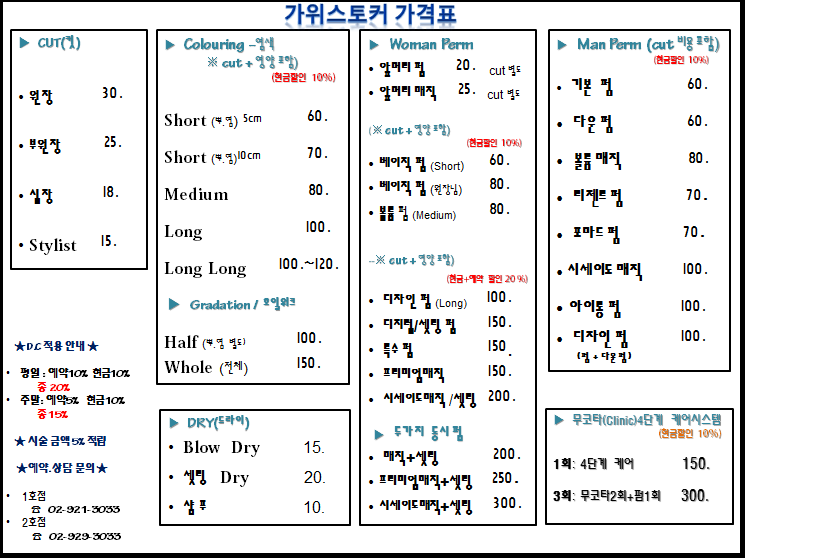 가위스토커 가격표
▶ CUT(컷)
• 원장 30.
• 부원장 25.
• 실장 18.
• Stylist 15.
▶ Colouring -염색
※ cut + 영양 포함)
(현금할인 10%)
Short (뿌.염) 5cm 60.
Short (뿌.염)10cm 70.
Medium 80.
Long 100.
Long Long 100.~120.
▶ Gradation / 호일워크
Half (뿌.염 별도) 100.
Whole (전체) 150.
▶ DRY(드라이)
• Blow Dry 15.
• 셋팅 Dry 20.
• 샴푸 10.
▶ Woman Perm
• 앞머리 펌 20. cut 별도
• 앞머리 매직 25. cut 별도
(※ cut + 영양 포함)
(현금할인 10%)
• 베이직 펌 (Short) 60.
• 베이직 펌 (원장님) 80.
• 볼륨 펌 (Medium) 80.
-※ cut + 영양 포함)
(현금+예약 할인 20%)
• 디자인 펌 (Long) 100.
• 디지털/셋팅 펌 150.
• 특수 펌 150.
• 프리미엄매직 150.
• 시세이도매직 /셋팅 200.
▶ 두가지 동시 펌
• 매직+셋팅 200.
• 프리미엄매직+셋팅 250.
• 시세이도매직+셋팅 300.
▶ Man Perm (cut 비용 포함)
(현금할인 10%)
• 기본 펌 60.
• 다운 펌 60.
• 볼륨 매직 80.
• 리젠트 펌 70.
• 포마드 펌 70.
• 시세이도 매직 100.
• 아이롱 펌 100.
• 디자인 펌 100.
(펌 + 다운 펌)
▶ 무코타(Clinic)4단계 케어시스템
(현금할인 10%)
1회: 4단계 케어 150.
3회: 무코타2회+펌1회 300.
★D.C 적용 안내 ★
• 평일 : 예약10% 현금10%
총 20%
• 주말: 예약5% 현금10%
총 15%
★ 시술 금액 5% 적립
★예약.상담 문의 ★
• 1호점
☎ 02-921-3033
• 2호점
☎ 02-929-3033